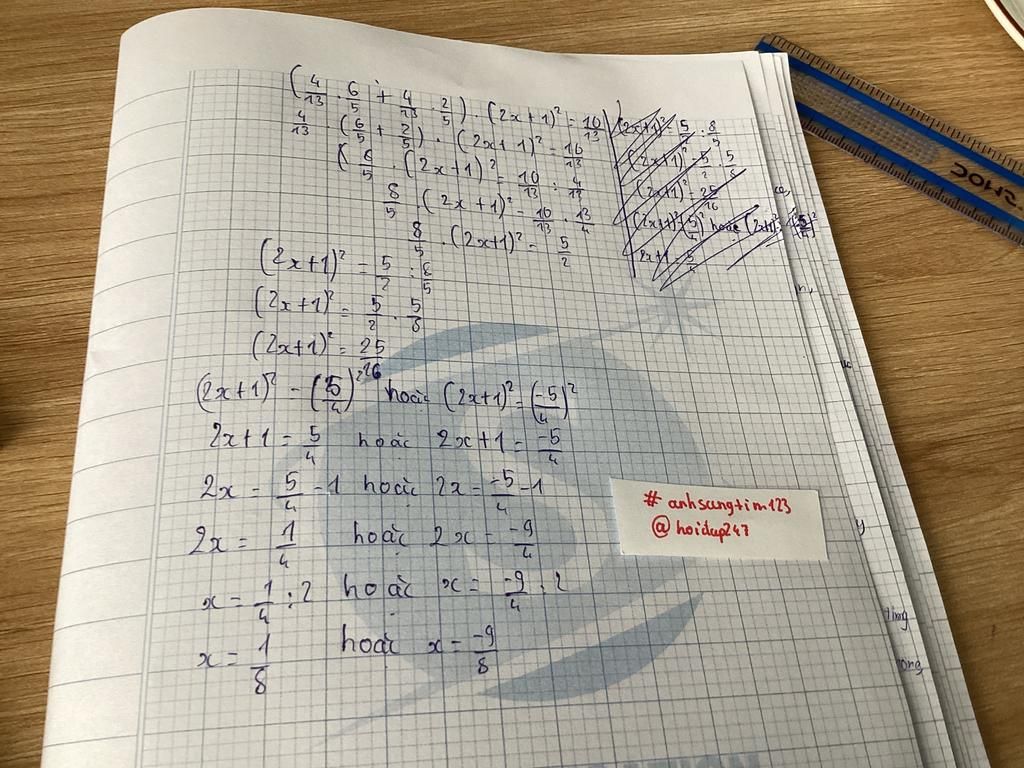 (4/13 . 6/5 + 4/13 . 2/5) . (2x+1)² = 10/13
4/13 . (6/5 + 2/5) . (2x+1)² = 10/13
6/5 . (2x+1)² = 10/13 : 4/13
8/5 . (2x+1)² = 10/13 . 13/4
8/5 . (2x+1)² = 5/2
(2x+1)² = 5/2 : 8/5
(2x+1)² = 5/2 . 5/8
(2x+1)² = 25/16
(2x+1)² = (5/4)² hoặc (2x+1)² = (-5/4)²
2x+1 = 5/4 hoặc 2x+1 = -5/4
2x = 5/4 - 1 hoặc 2x = -5/4 - 1
2x = 1/4 hoặc 2x = -9/4
x = 1/4 : 2 hoặc x = -9/4 : 2
x = 1/8 hoặc x = -9/8
(2x+1)² = 5/2 : 8/5
(2x+1)² = 5/2 . 5/8
(2x+1)² = 25/16
(2x+1)² = (5/4)² hoặc (2x+1)² = (-5/4)²
2x+1 = 5/4
# anhsangtim123
@ hoidap247